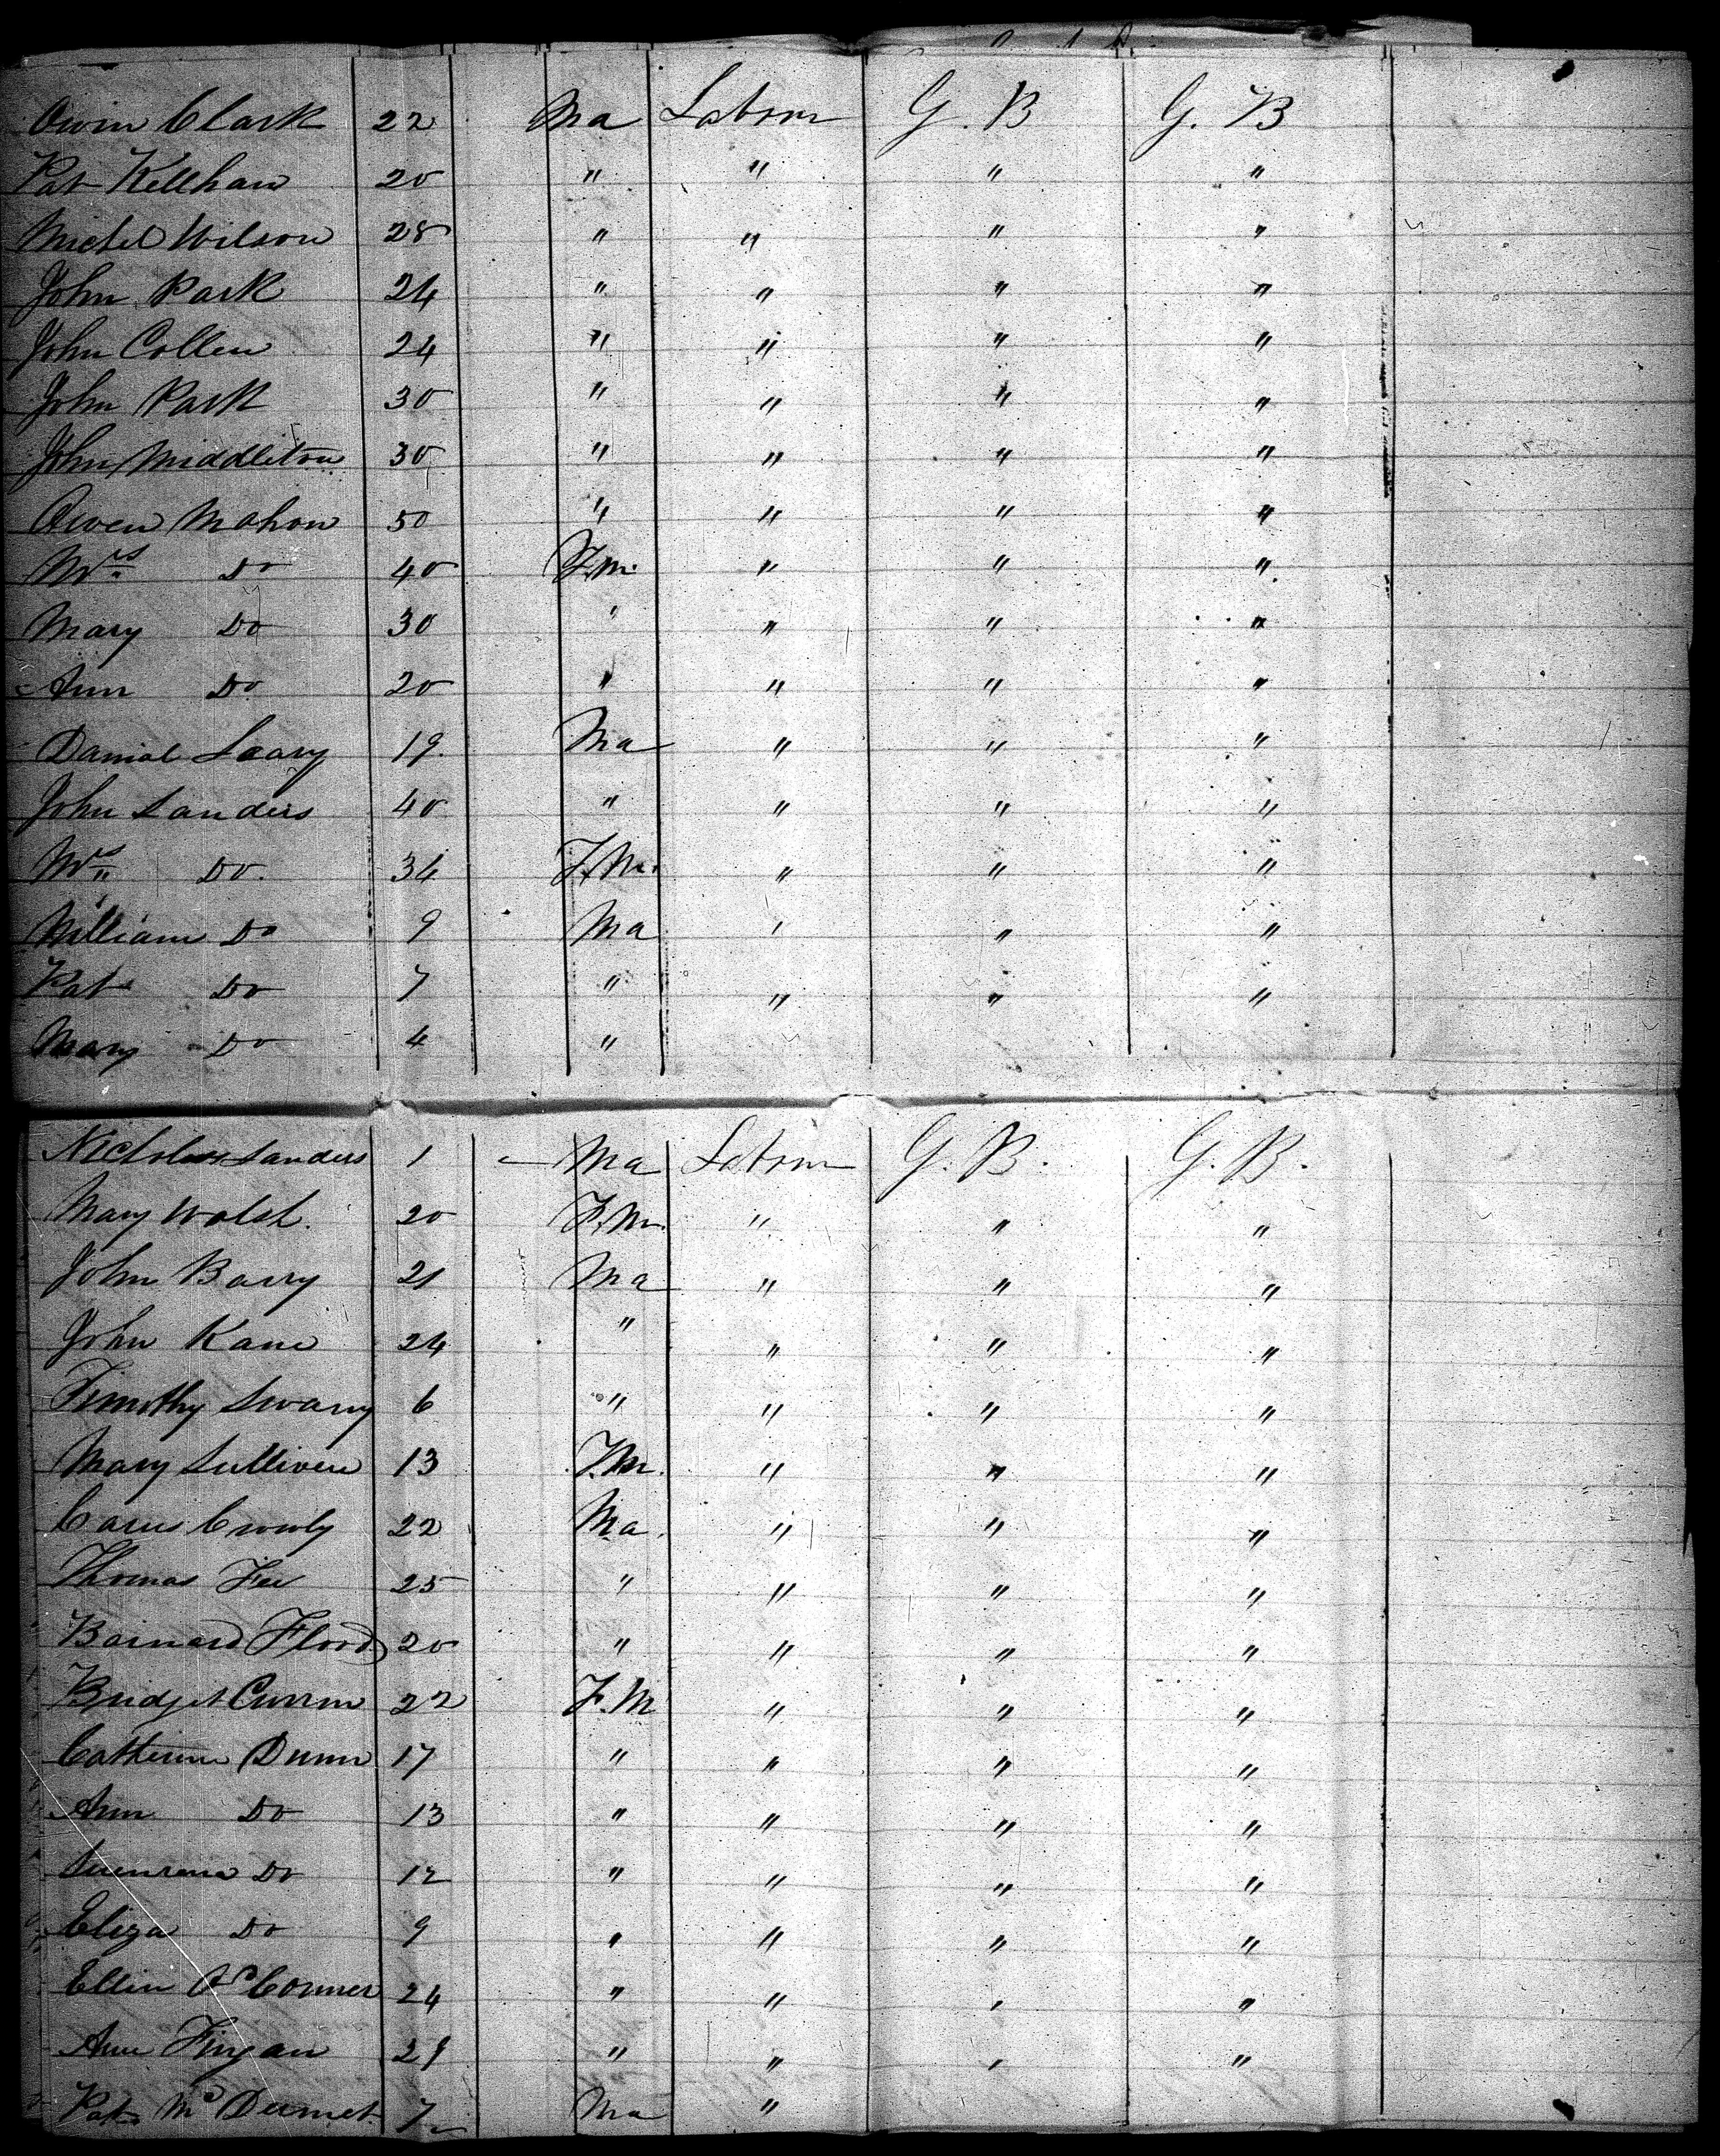 Owin Clark 22 Ma Labour G. B G. B
Pat Kellham 20 " " " "
Michel Wilson 28 " " " "
John Park 24 " " " "
John Collen 24 " " " "
John Park 30 " " " "
John Middleton 30 " " " "
Owen Mahon 50 " " " "
Mrs Do 40 F.m. " " "
Mary Do 30 " " " "
Ann Do 20 " " " "
Daniel Leary 19 Ma " " "
John Sanders 40 " " " "
Mrs Do 34 F.M. " " "
William Do 9 Ma " " "
Pat Do 7 " " " "
Mary Do 4 "
Nicholas Sanders 1 Ma Labour G. B. G. B.
Mary Walsh 20 F.M. " " "
John Barry 21 Ma " " "
John Kane 24 " " " "
Timothy Swany 6 " " " "
Mary Sulliven 13 F.M. " " "
Crowly 22 Ma " " "
Thomas Fee 25 " " " "
Barnard Flood 20 " " " "
Bridget Curren 22 F.M " " "
Catherine Dunn 17 " " " "
Ann Do 13 " " " "
Do 12 " " " "
Eliza Do 9 " " " "
Ellin O'Conner 24 " " " "
Ann Fingan 29 " " " "
Pat McDermet 7 Ma "